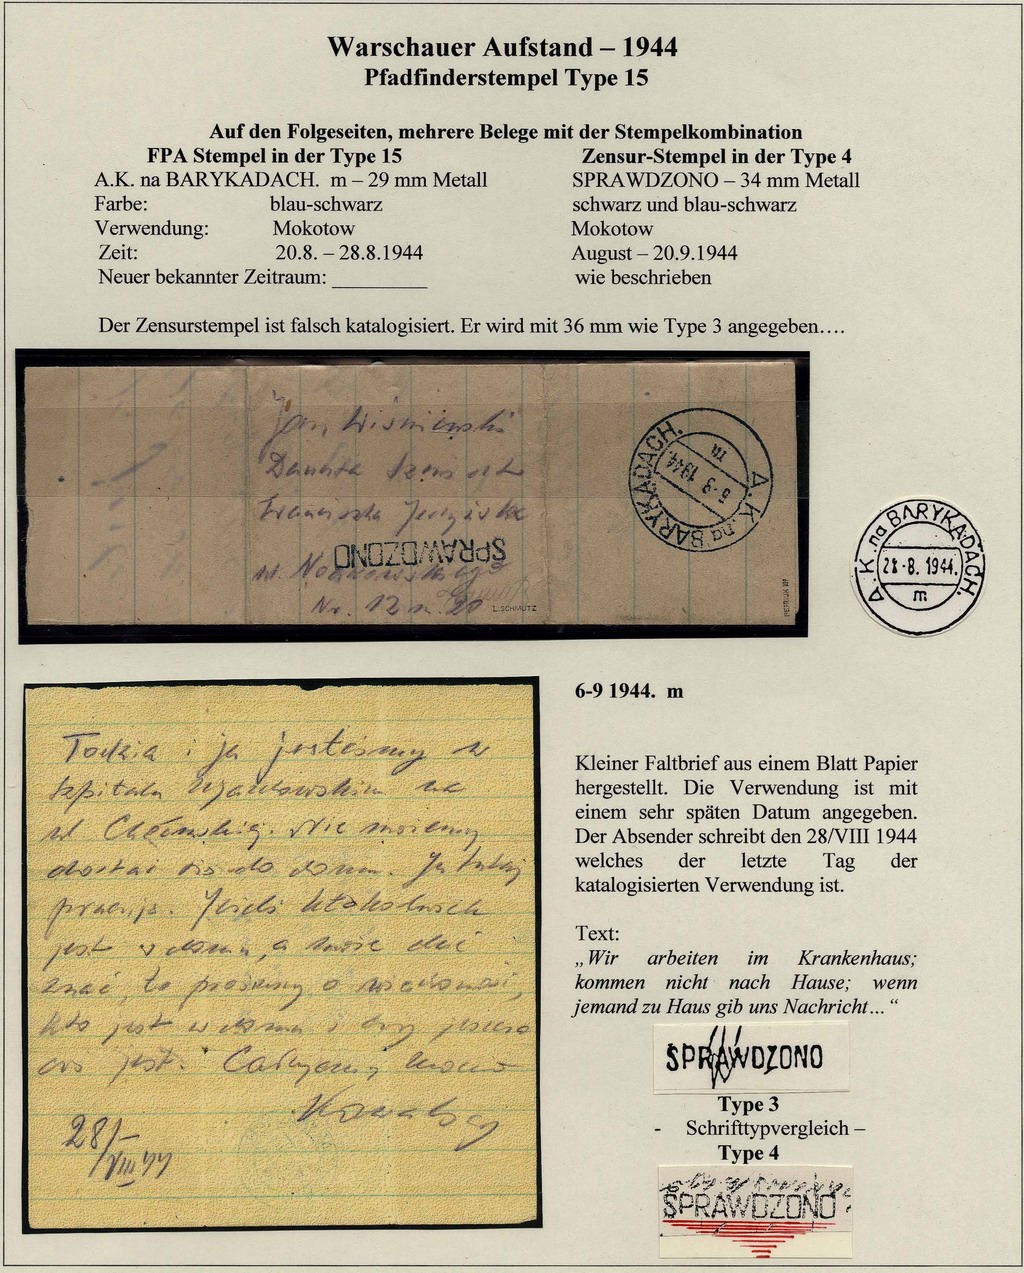 Warschauer Aufstand – 1944
Pfadfinderstempel Type 15
Auf den Folgeseiten, mehrere Belege mit der Stempelkombination
FPA Stempel in der Type 15 Zensur-Stempel in der Type 4
A.K. na BARYKADACH. m – 29 mm Metall SPRAWDZONO – 34 mm Metall
Farbe: blau-schwarz schwarz und blau-schwarz
Verwendung: Mokotow Mokotow
Zeit: 20.8. – 28.8.1944 August – 20.9.1944
Neuer bekannter Zeitraum: wie beschrieben
Der Zensurstempel ist falsch katalogisiert. Er wird mit 36 mm wie Type 3 angegeben….
Jan Wiśniewski
Danuta
Franciszka
SPRAWDZONO
Nr. 12 m. 20
L.SCHMUTZ
A.K. na BARYKADACH.
6-9 1944
m
A.K. na BARYKADACH.
28-8. 1944.
m
6-9 1944. m
Kleiner Faltbrief aus einem Blatt Papier
hergestellt. Die Verwendung ist mit
einem sehr späten Datum angegeben.
Der Absender schreibt den 28/VIII 1944
welches der letzte Tag der
katalogisierten Verwendung ist.
Text:
„Wir arbeiten im Krankenhaus;
kommen nicht nach Hause; wenn
jemand zu Haus gib uns Nachricht…“
i ja jesteśmy w
szpitalu Ujazdowskim na
ul Chełmskiej. Nie możemy
dostać się do domu. Ja tutaj
pracuję. Jeżeli ktokolwiek
jest w domu, a może dać
znać, to prosimy o wiadomość,
kto jest w domu i czy jeszcze
coś jest. Całujemy mocno
28/-
VIII 44
SPRAWDZONO
Type 3
- Schrifttypvergleich –
Type 4
SPRAWDZONO